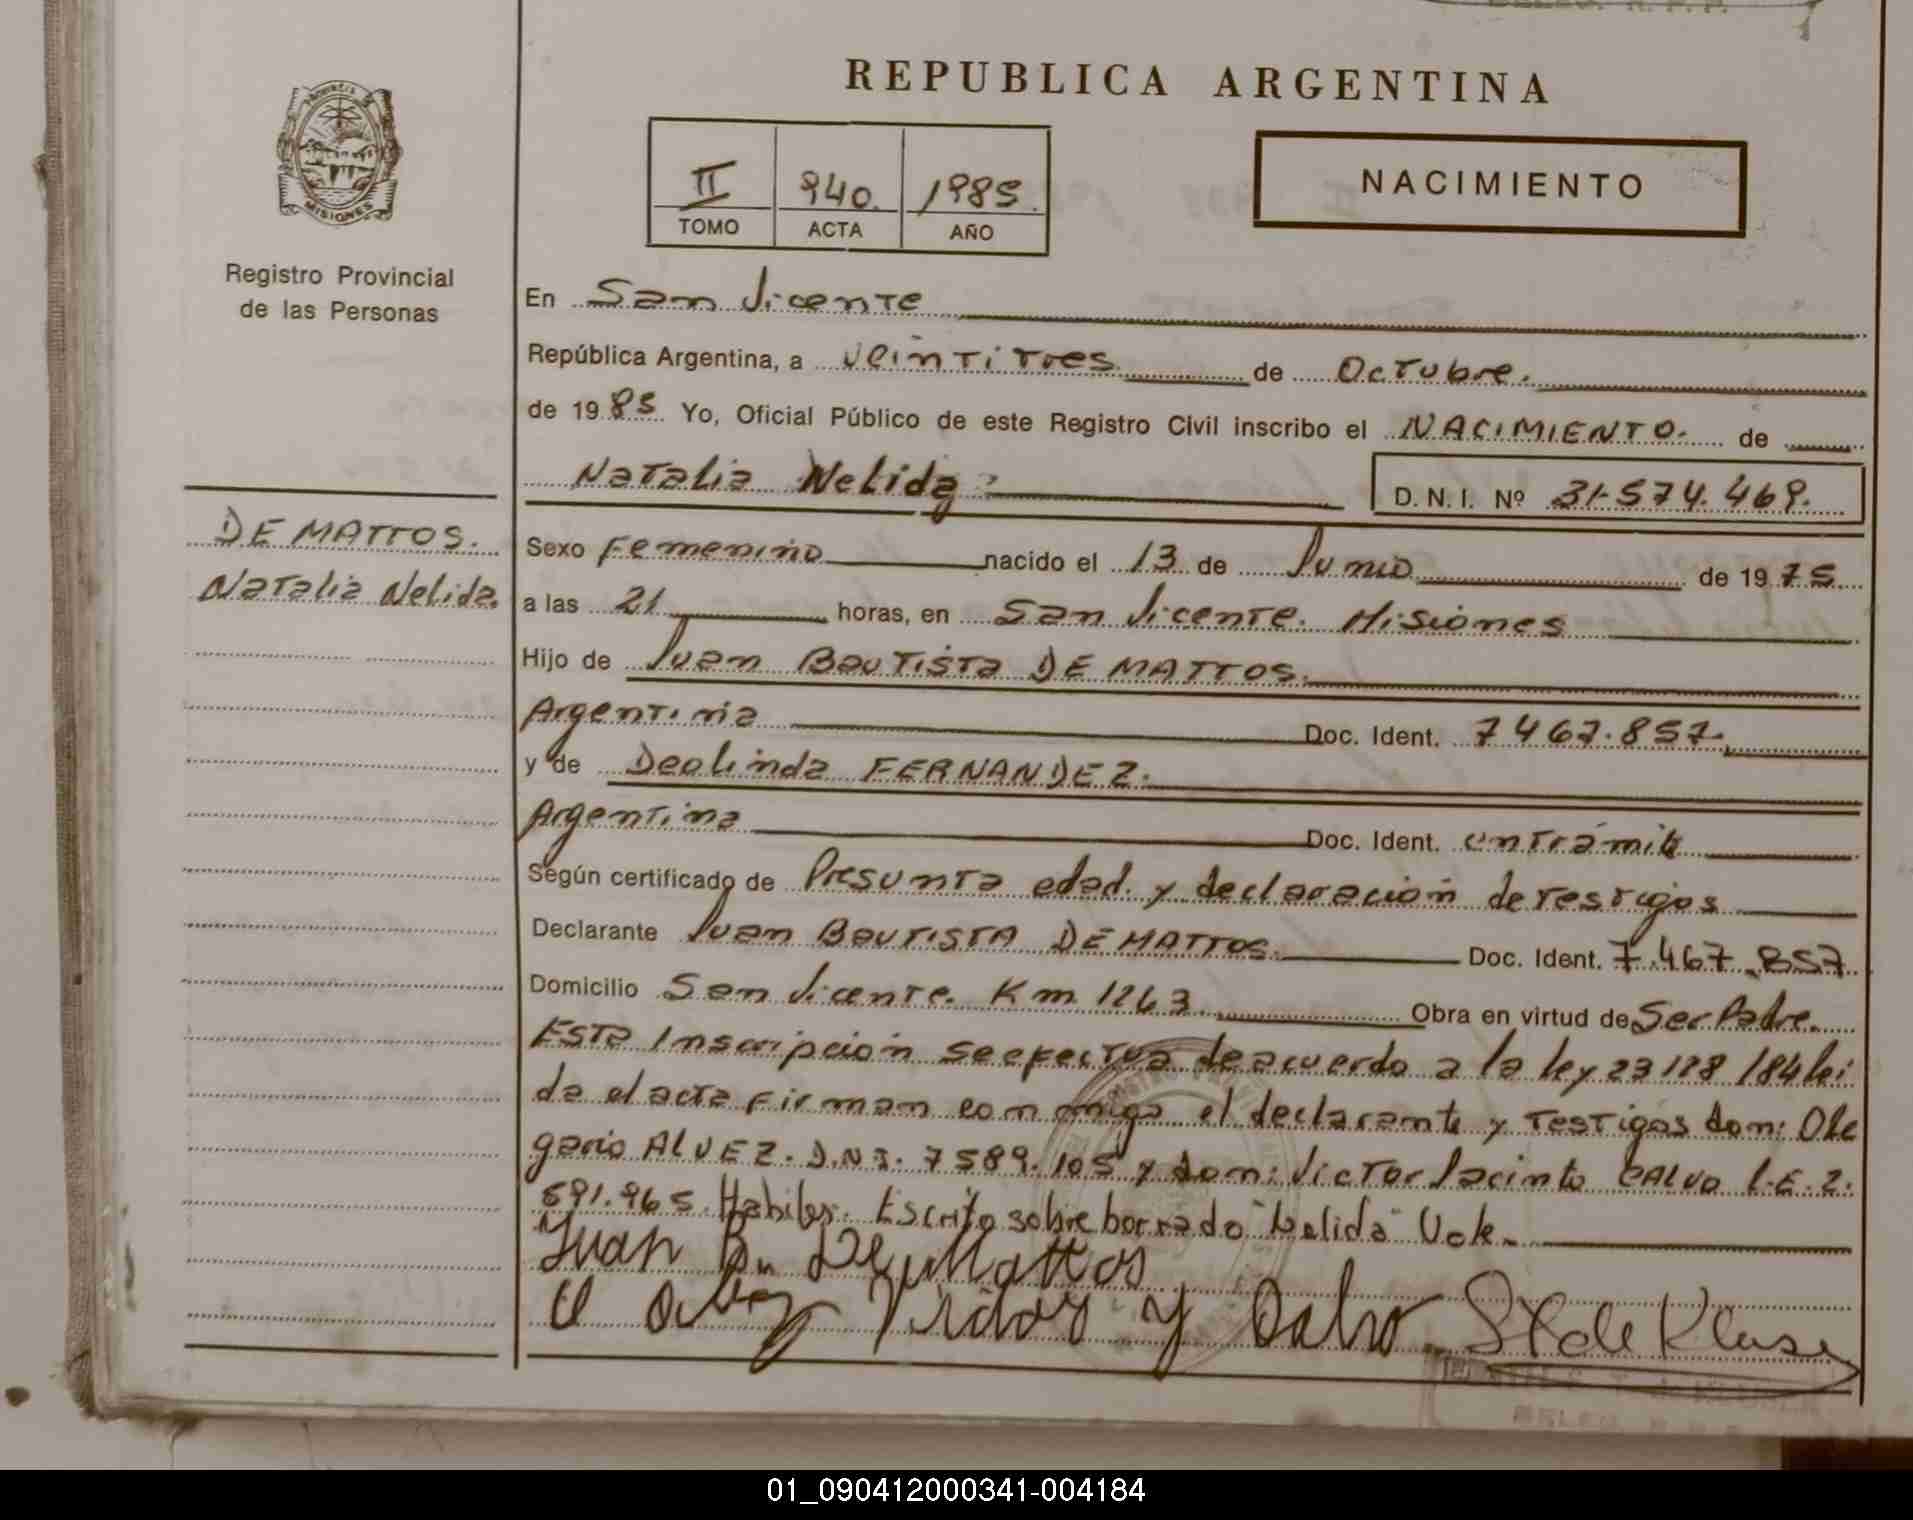 REPUBLICA ARGENTINA
II 940. 1985.
TOMO ACTA AÑO
NACIMIENTO
MISIONES
Registro Provincial
de las Personas
DE MATTOS.
Natalia Nelida.
En San Vicente
República Argentina, a veintitres de Octubre.
de 1985 Yo, Oficial Público de este Registro Civil inscribo el NACIMIENTO. de
Natalia Nelida
D. N. I. Nº 31.574.469.
Sexo Femenino nacido el 13 de Junio de 1975
a las 21 horas, en San Vicente. Misiones
Hijo de Juan Bautista DE MATTOS.
Argentina Doc. Ident. 7467.857.
y de Deolinda FERNANDEZ.
Argentina Doc. Ident. entrámite
Según certificado de Presunta edad. y declaración de testigos
Declarante Juan BAUTISTA DE MATTOS. Doc. Ident. 7.467.857
Domicilio San Vicente. Km 1263 Obra en virtud de Ser Padre.
Esta Inscripción se efectua deacuerdo a la ley 23128 /84 lei
da el acta firman conmigo el declarante y Testigos don: Ole
gario ALVEZ. D.N.I. 7589.105 y don: Victor Jacinto CALVO L.E. 2.
591.965. Habiles. Escrito sobre borrado "Nelida" Vale.
Juan B. De Mattos
Victor y Calvo
01_090412000341-004184